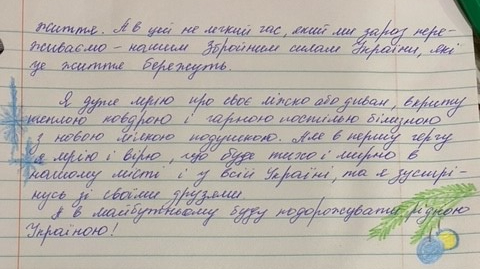 життя. А в цей нелегкий час, який ми зараз пере-
живаємо - нашим Збройним силам України, які
це життя бережуть.
Я дуже мрію про своє ліжко або диван, вкриту
теплою ковдрою і гарною постільною білизною
з новою мʼякою подушкою. Але в першу чергу
я мрію і вірю, що буде тихо і мирно в
нашому місті і у всій Україні, та я зустрі-
нусь зі своїми друзями.
А в майбутньому буду подорожувати рідною
Україною!